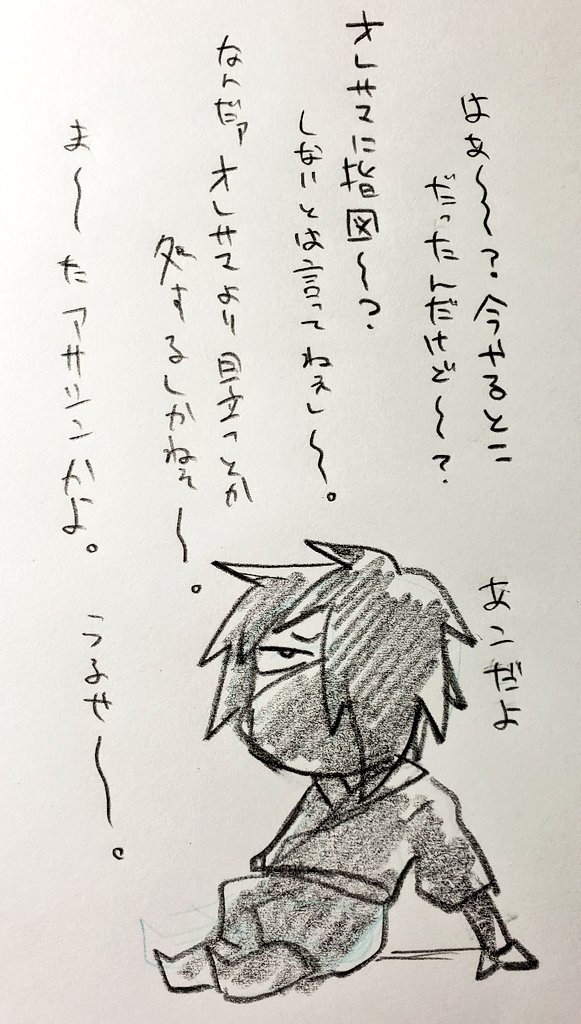 はぁ〜〜？今やるとこ
だったんだけど〜？
オレサマに指図〜？
しないとは言ってねぇし〜。
なんだァオレサマより目立つとか
処するしかねぇ〜。
ま〜たアサシンかよ。うるせ〜。
あこだよ